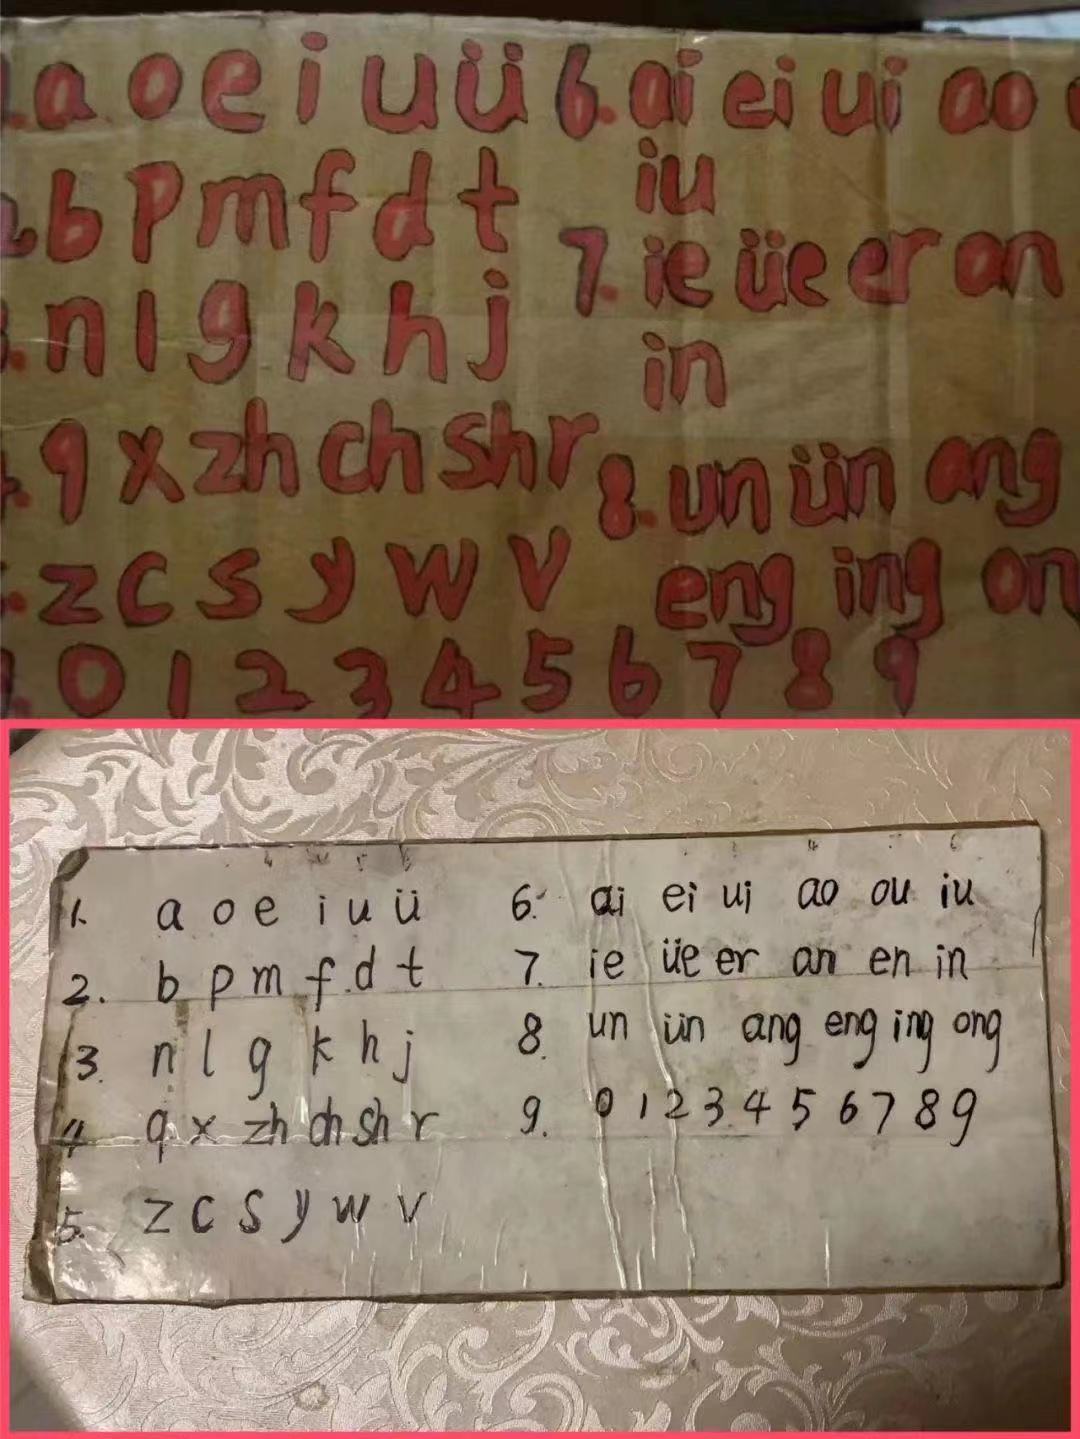 a o e i u ü
b p m f d t
n l g k h j
q x zh ch sh r
z c s y w v
0 1 2 3 4 5 6 7 8 9
6. ai ei ui ao
iu
7. ie üe er an
in
8. un ün ang
eng ing on
1. a o e i u ü
2. b p m f d t
3. n l g k h j
4. q x zh ch sh r
5. z c s y w v
6. ai ei ui ao ou iu
7. ie üe er an en in
8. un ün ang eng ing ong
9. 0 1 2 3 4 5 6 7 8 9